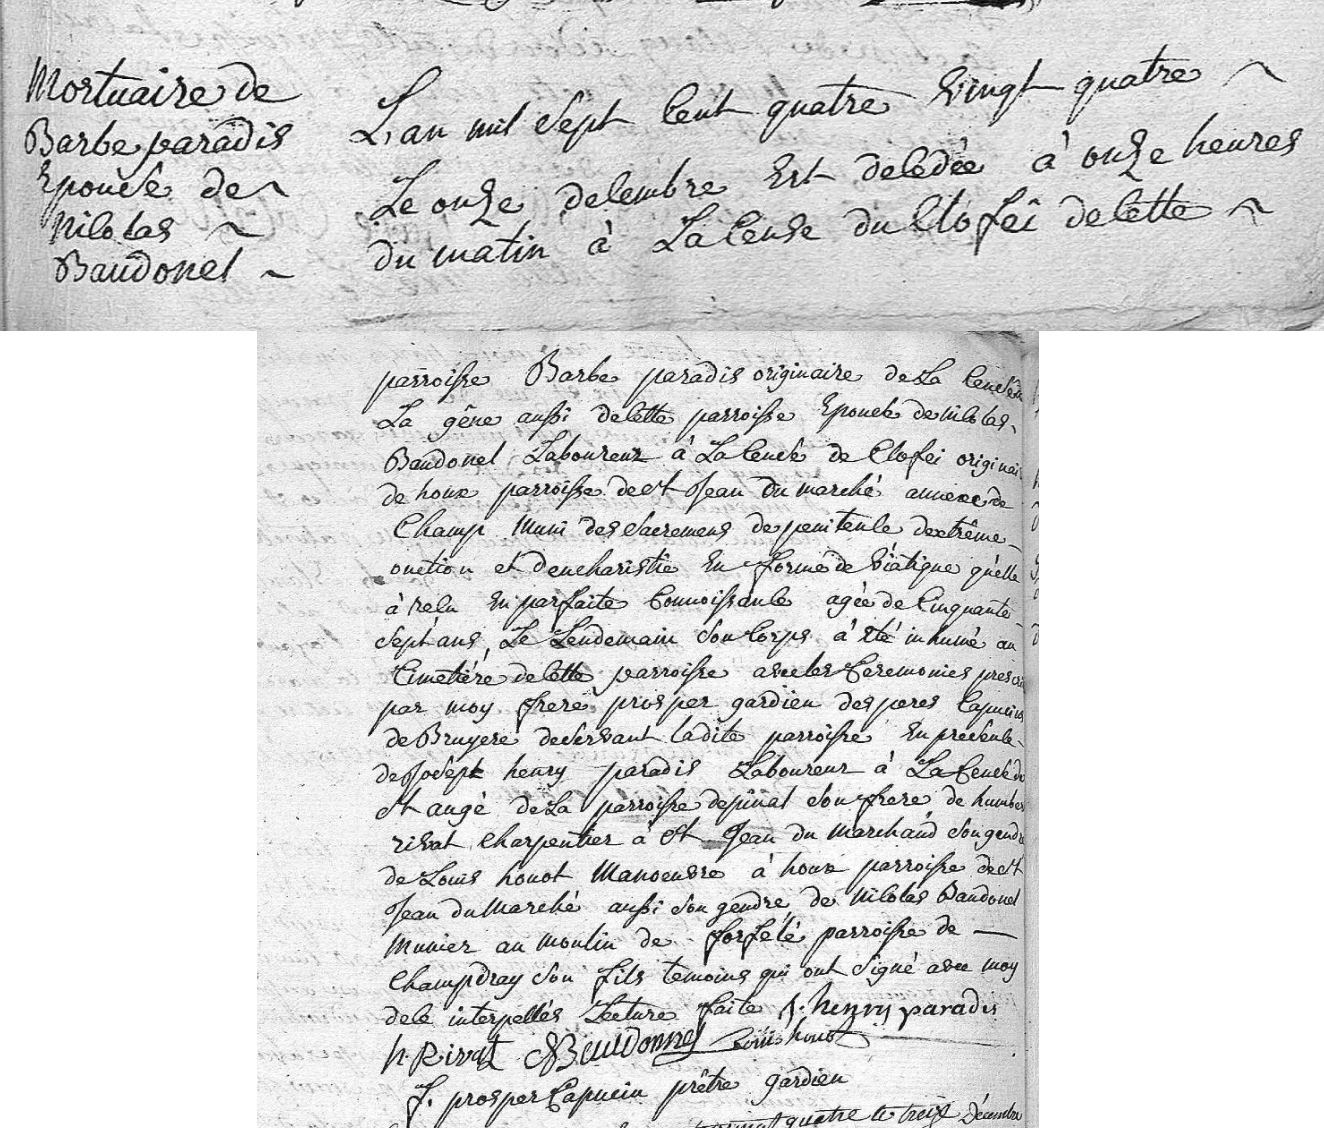 Mortuaire de
Barbe paradis
Epouse de
Nicolas
Baudonel
L'an mil sept cent quatre vingt quatre
Le onze decembre Est decedée à onze heures
du matin à La Cense du Clofei de cette
parroisse Barbe paradis originaire de La Cense de
La gêne aussi de cette parroisse Epouse de nicolas
Baudonel Laboureur à La Cense de Clofei originai
de houx parroisse de St Jean du marché annexe de
Champ Muni des sacremens de penitence dextrême
onction et deucharistie En forme de viatique qu'elle
à reçu En parfaite Connoissance agée de Cinquante
sept ans, Le Lendemain son Corps à été inhumé au
Cimetiére de cette parroisse avec les Ceremonies prescri
par moy frere prosper gardien des peres Capucins
de Bruyere desservant ladite parroisse En présence
de Joseph henry paradis Laboureur à La Cense de
St angé de La parroisse depinal son frere de humber
rivat Charpentier à St Jean du Marchand son gendre
de Louis houot Manoeuvre à houx parroisse de St
Jean du Marché aussi son gendre de Nicolas Baudonel
Munier au moulin de forfelé parroisse de
Champdray son fils temoins qui ont signé avec moy
de ce interpellés Lecture faite J. henry paradis
h. Rivat N Baudonnel Louis houot
f. prosper Capucin prêtre gardien
quatre le treize décembre